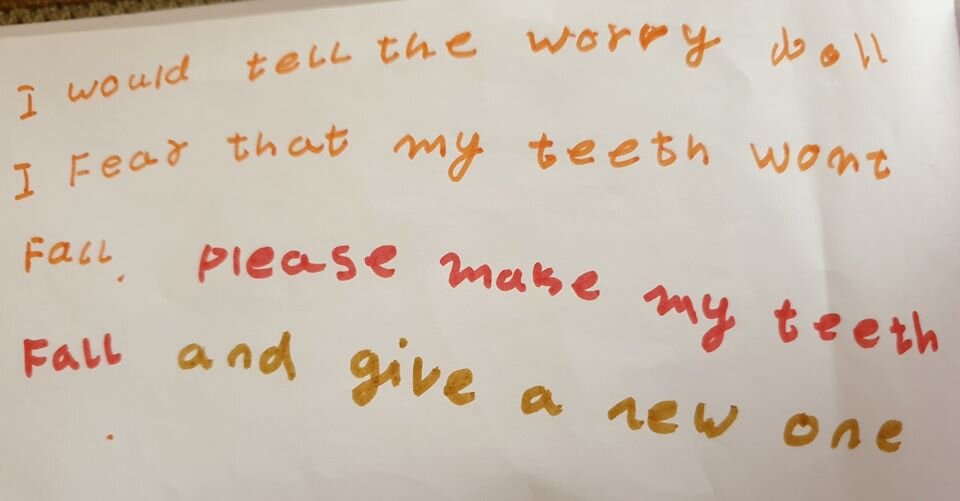 I would tell the worry doll
I Fear that my teeth wont
Fall. please make my teeth
Fall and give a new one